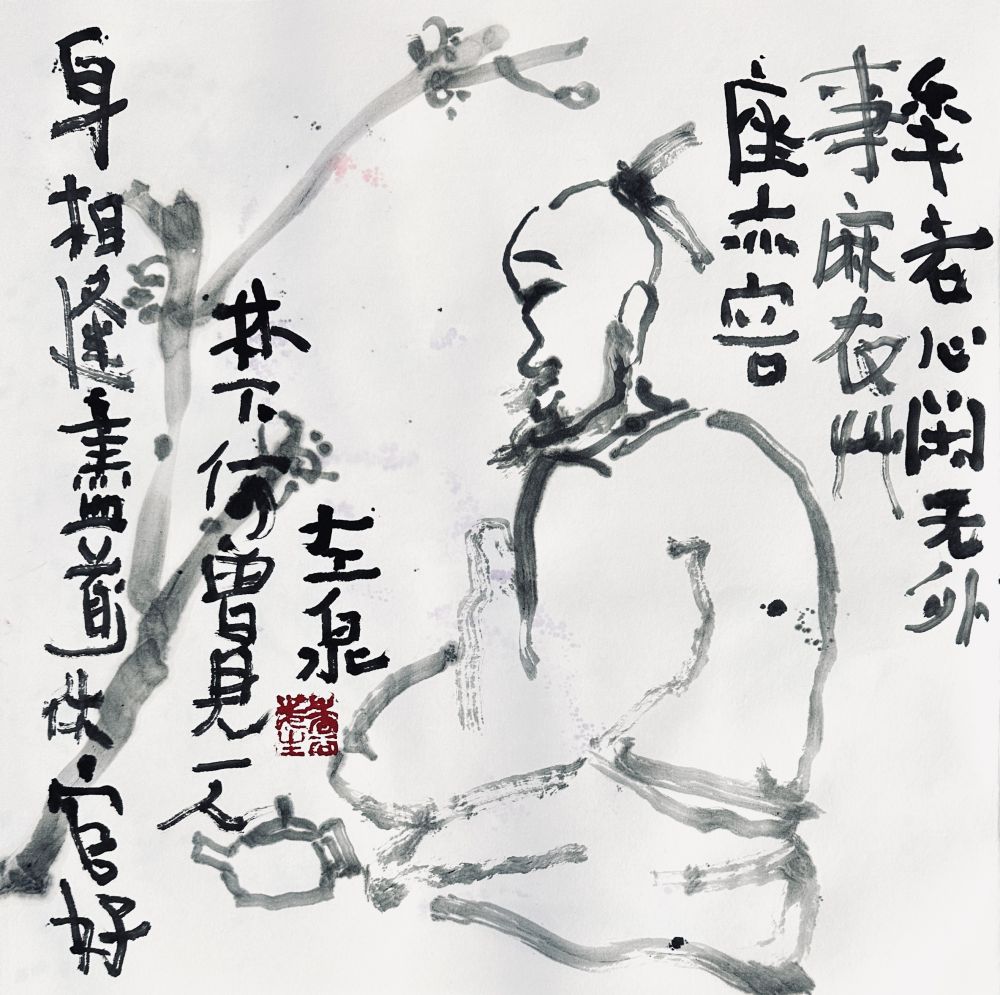 秊老心閑无外
事麻衣艸
座亦容
身相逢盡道休官好
林下何曾見一人
左泉